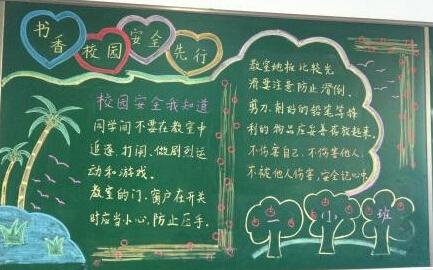 书香 校园 安全 先行
校园安全我知道
同学间不要在教室中
追逐、打闹、做剧烈运
动和游戏。
教室的门、窗户在开关
时应当小心,防止压手。
教室地板比较光
滑要注意防止滑倒。
剪刀、削好的铅笔等锋
利的物品应妥善存放起来。
不伤害自己,不伤害他人,
不被他人伤害,安全记心中
(1) 班